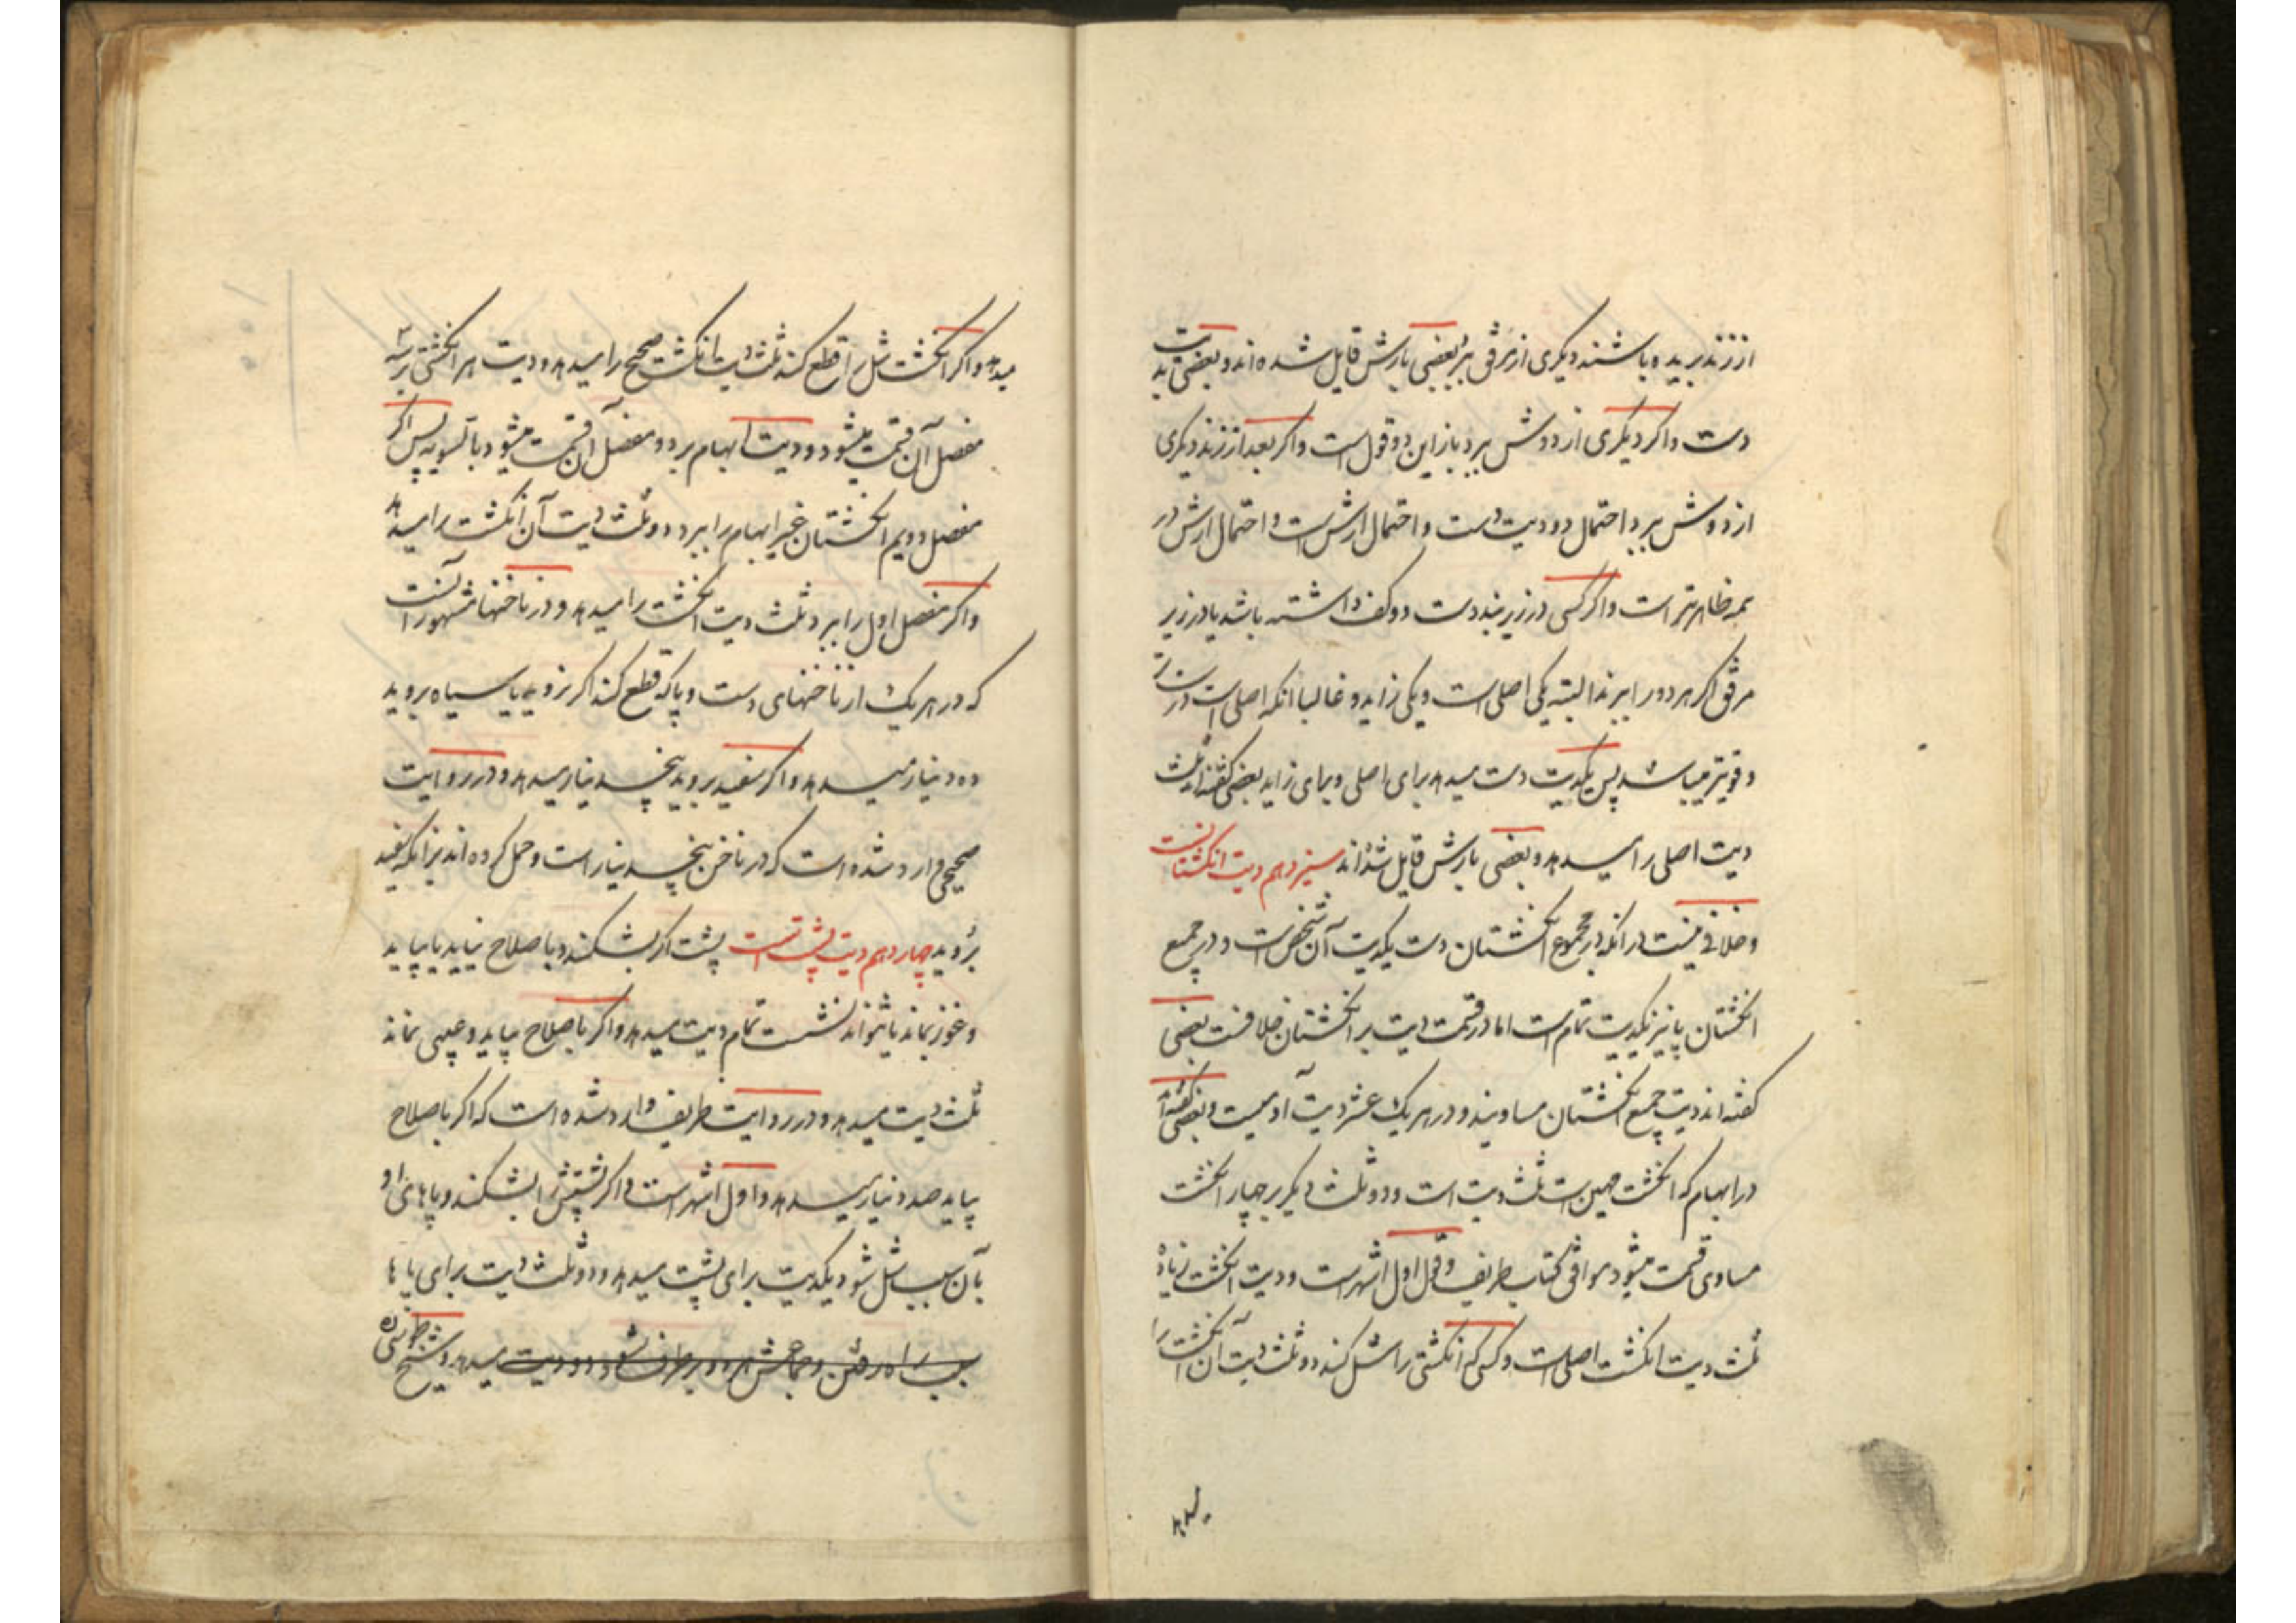 از زند ببرید و باشند دیکری از مرفق ببرد بعضی بارش قایل شده اند و بعضی بدیت
دست و اکر دیکری از دوش ببرد باز این دو قول است و اکر بعد از زند دیکری
از دوش ببرد احتمال دو دیت دست و احتمال ارش است و احتمال ارش در
همه ظاهرتر است و اکر کسی در زیر بند دست دو کف داشته باشد یا در زیر
مرفق اکر هر دو را ببرند البته یکی اصلی است و یکی زاید و غالبا انکه اصلی است درازتر
و قویتر میباشد پس یکدیت دست میدهد برای اصلی و برای زاید بعضی کفته اند ثلث
دیت اصلی را میدهد و بعضی بارش قایل شده اند سیزدهم دیت انکشتانست
و خلافی نیست در انکه در مجموع انکشتان دست یکدیت آن شخص است و در جمیع
انکشتان پا نیز یکدیت تمام است اما در قسمت دیت بر انکشتان خلافست بعضی
کفته اند دیت جمیع انکشتان مساویند و در هر یک عشر دیت آدمیست و بعضی کفته اند
در ابهام که انکشت مهین است ثلث دیت است و دو ثلث دیکر بر چهار انکشت
مساوی قسمت میشود موافق کتاب ظریف و قول اول اشهر است و دیت انکشت زیاده
ثلث دیت انکشت اصلی است و کسی که انکشتی را شل کند دو ثلث دیت آن انکشت را
میدهد
میدهد و اکر انکشت شل را قطع کند ثلث دیت انکشت صحیح را میدهد و دیت هر انکشتی بر سه
مفصل آن قسمت میشود و دیت ابهام بر دو مفصل آن قسمت میشود بالتسویه پس اکر
مفصل دویم انکشتان غیر ابهام را ببرد دو ثلث دیت آن انکشت را میدهد
و اکر مفصل اول را ببرد ثلث دیت انکشت را میدهد و در ناخنها مشهور آنست
که در هر یک از ناخنهای دست و پا که قطع کند اکر نروید یا سیاه بروید
ده دینار میدهد و اکر سفید بروید پنجدینار میدهد و در روایت
صحیحی وارد شده است که در ناخن پنجدینار است و حمل کرده اند بر انکه سفید
بروید چهاردهم دیت پشت است پشت اکر بشکند و باصلاح نیاید یا بیاید
و غوز بماند یا نتواند نشست تمام دیت میدهد و اکر باصلاح بیاید و عیبی نماند
ثلث دیت میدهد و در روایت ظریف وارد شده است که اکر باصلاح
بیاید صد دینار میدهد و اول اشهر است و اکر پشتش را بشکند و پاهای او
بآن سبب شل شود یکدیت برای پشت میدهد و دو ثلث دیت برای پاها
بسبب راه رفتن و جماعش هر دو برطرف شود دو دیت میدهد و شیخ طوسی ره